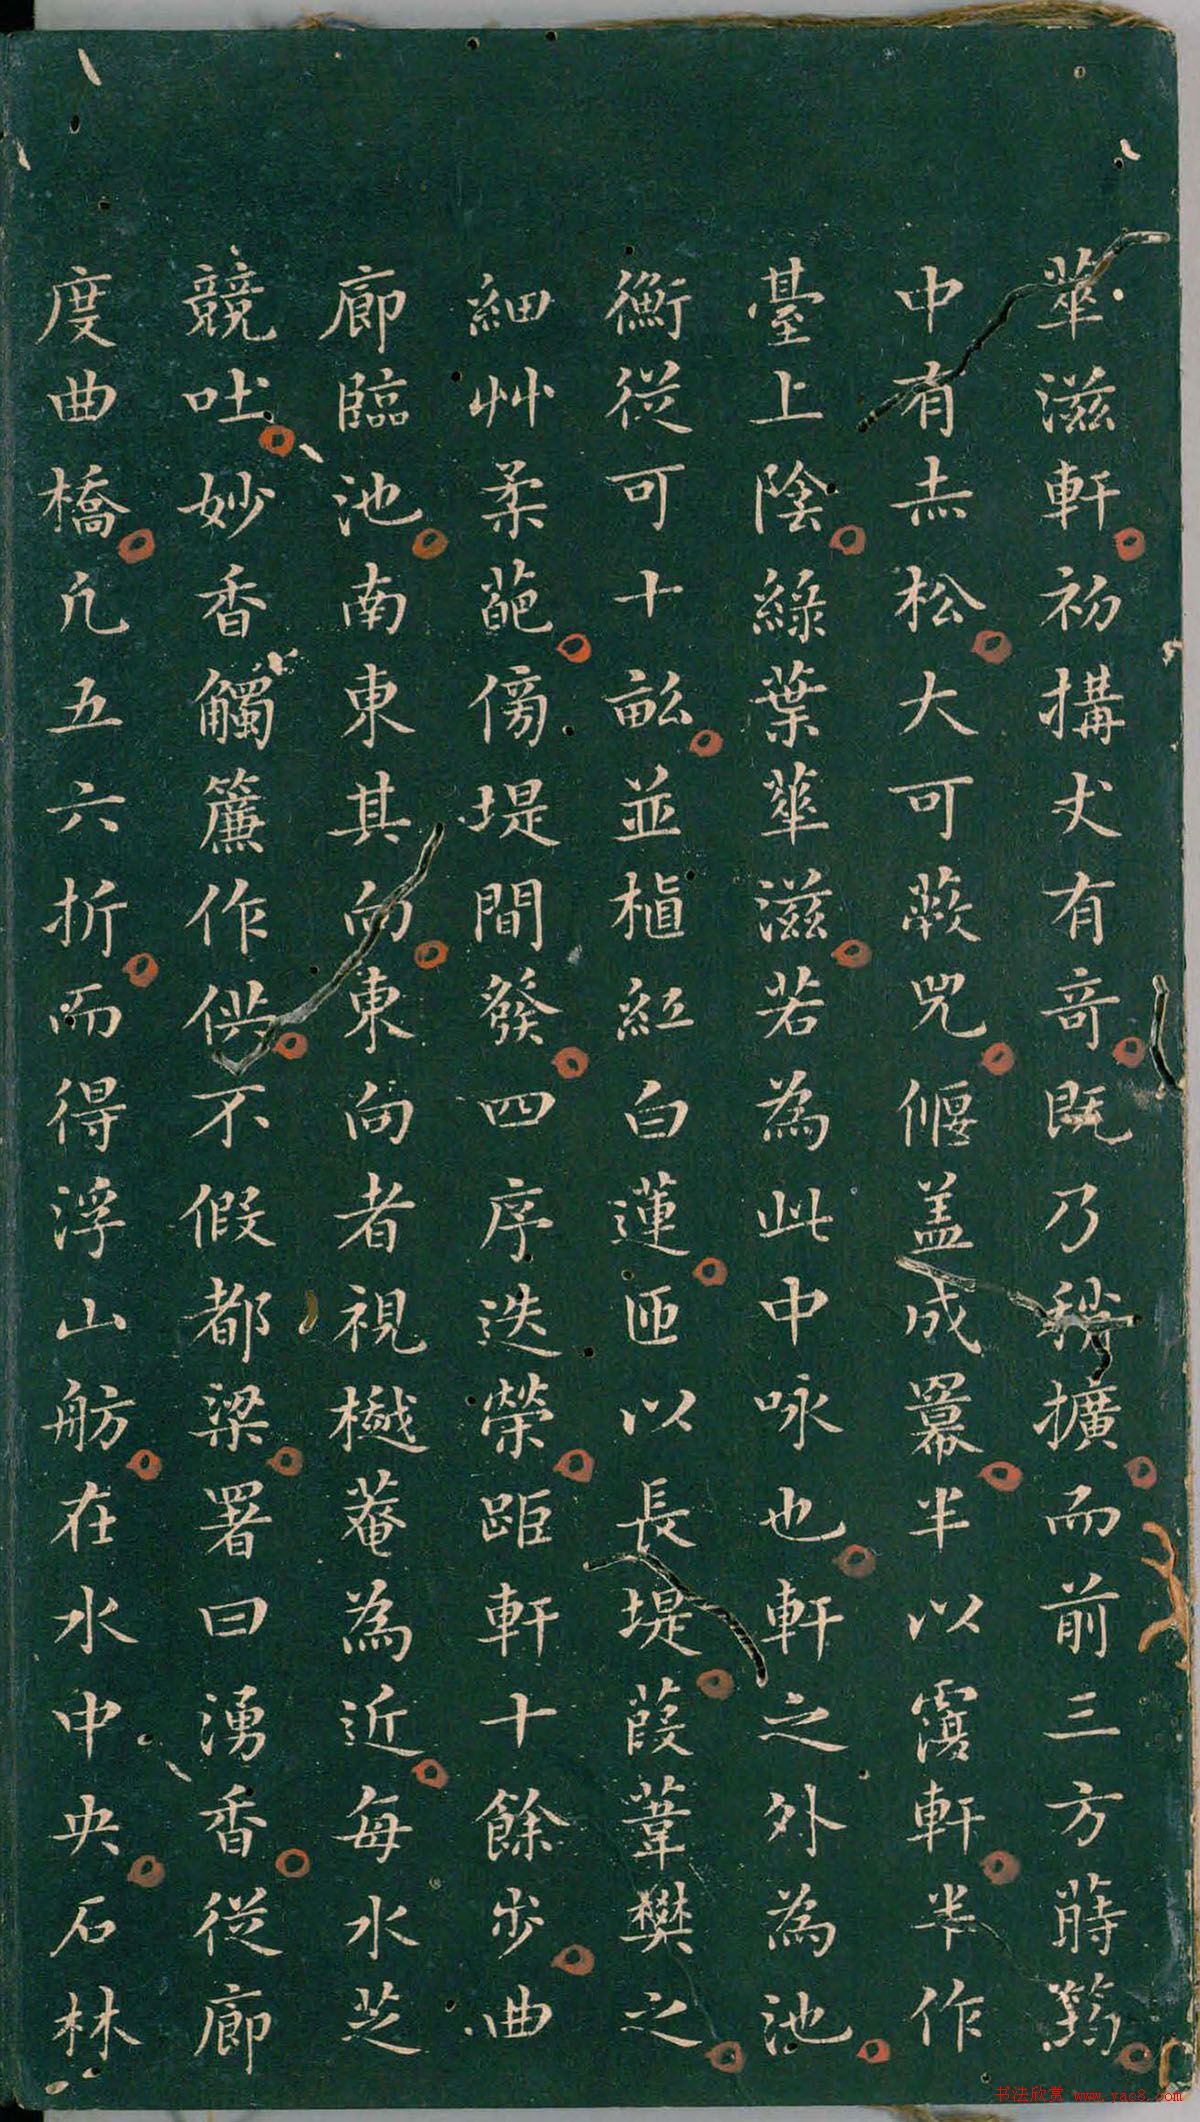 蕐滋軒初搆丈有竒既乃稍擴而前三方蒔筠
中有赤松大可蔽兕偃盖成羃半以覆軒半作
臺上陰綠葉蕐滋若為此中咏也軒之外為池
衡從可十畝並植紅白蓮匝以長堤葭葦樊之
細艸柔葩傍堤間發四序迭榮距軒十餘步曲
廊臨池南東其向東向者視樾菴為近每水芝
競吐妙香觸簾作供不假都梁署曰湧香從廊
度曲橋凢五六折而得浮山舫在水中央石林
书法欣赏 www.yac8.com